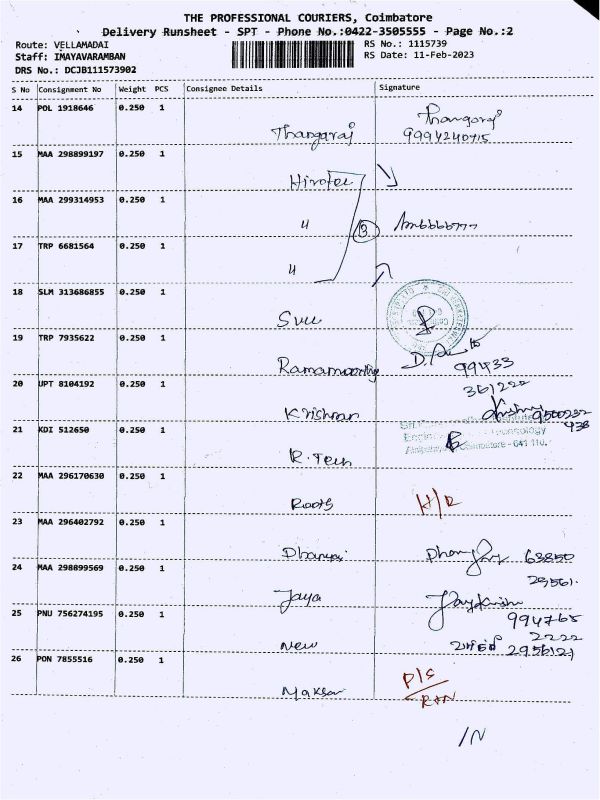 THE PROFESSIONAL COURIERS, Coimbatore
Delivery Runsheet - SPT - Phone No.:0422-3505555 - Page No.:2
Route: VELLAMADAI
RS No.: 1115739
Staff: IMAYAVARAMBAN
RS Date: 11-Feb-2023
DRS No.: DCJB111573902
S No Consignment No Weight PCS Consignee Details Signature
14 POL 1918646 0.250 1
Thangaraj Thangaraj
9994240715
15 MAA 298899197 0.250 1
Hirotec
16 MAA 299314953 0.250 1
" 3
17 TRP 6681564 0.250 1
"
18 SLM 313686855 0.250 1
Svu
19 TRP 7935622 0.250 1
Ramamoorthy 99433
361222
20 UPT 8104192 0.250 1
Krishnan 9500232
938
21 KDI 512650 0.250 1
R. Tech Coimbatore - 641 110.
22 MAA 296170630 0.250 1
Roots H/R
23 MAA 296402792 0.250 1
Dhanya 63850
24 MAA 298899569 0.250 1
29561.
Jaya
25 PNU 756274195 0.250 1
994765
2222
New 2956121
26 PON 7855516 0.250 1
P/S
RTN
/N